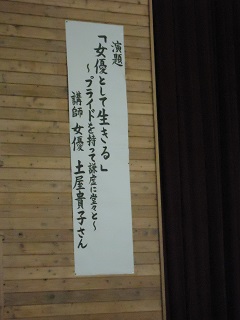 演題
「女優として生きる」
～プライドを持って謙虚に堂々と～
講師 女優 土屋貴子さん